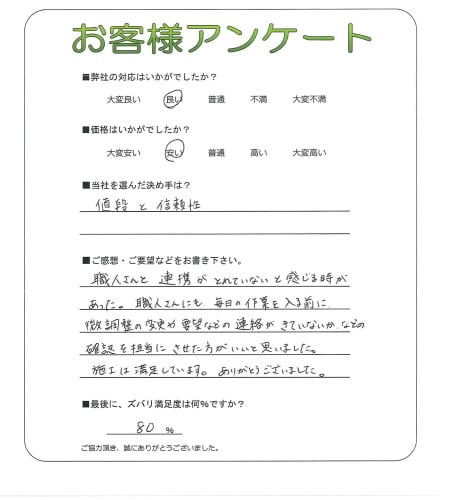 お客様アンケート
■弊社の対応はいかがでしたか？
大変良い 良い 普通 不満 大変不満
■価格はいかがでしたか？
大変安い 安い 普通 高い 大変高い
■当社を選んだ決め手は？
値段と信頼性
■ご感想・ご要望などをお書き下さい。
職人さんと連携がとれていないと感じる時が
あった。職人さんにも、毎日の作業を入る前に、
微調整の変更や要望などの連絡がきていないか、などの
確認を担当にさせた方がいいと思いました。
施工は満足しています。ありがとうございました。
■最後に、ズバリ満足度は何％ですか？
80 %
ご協力頂き、誠にありがとうございました。